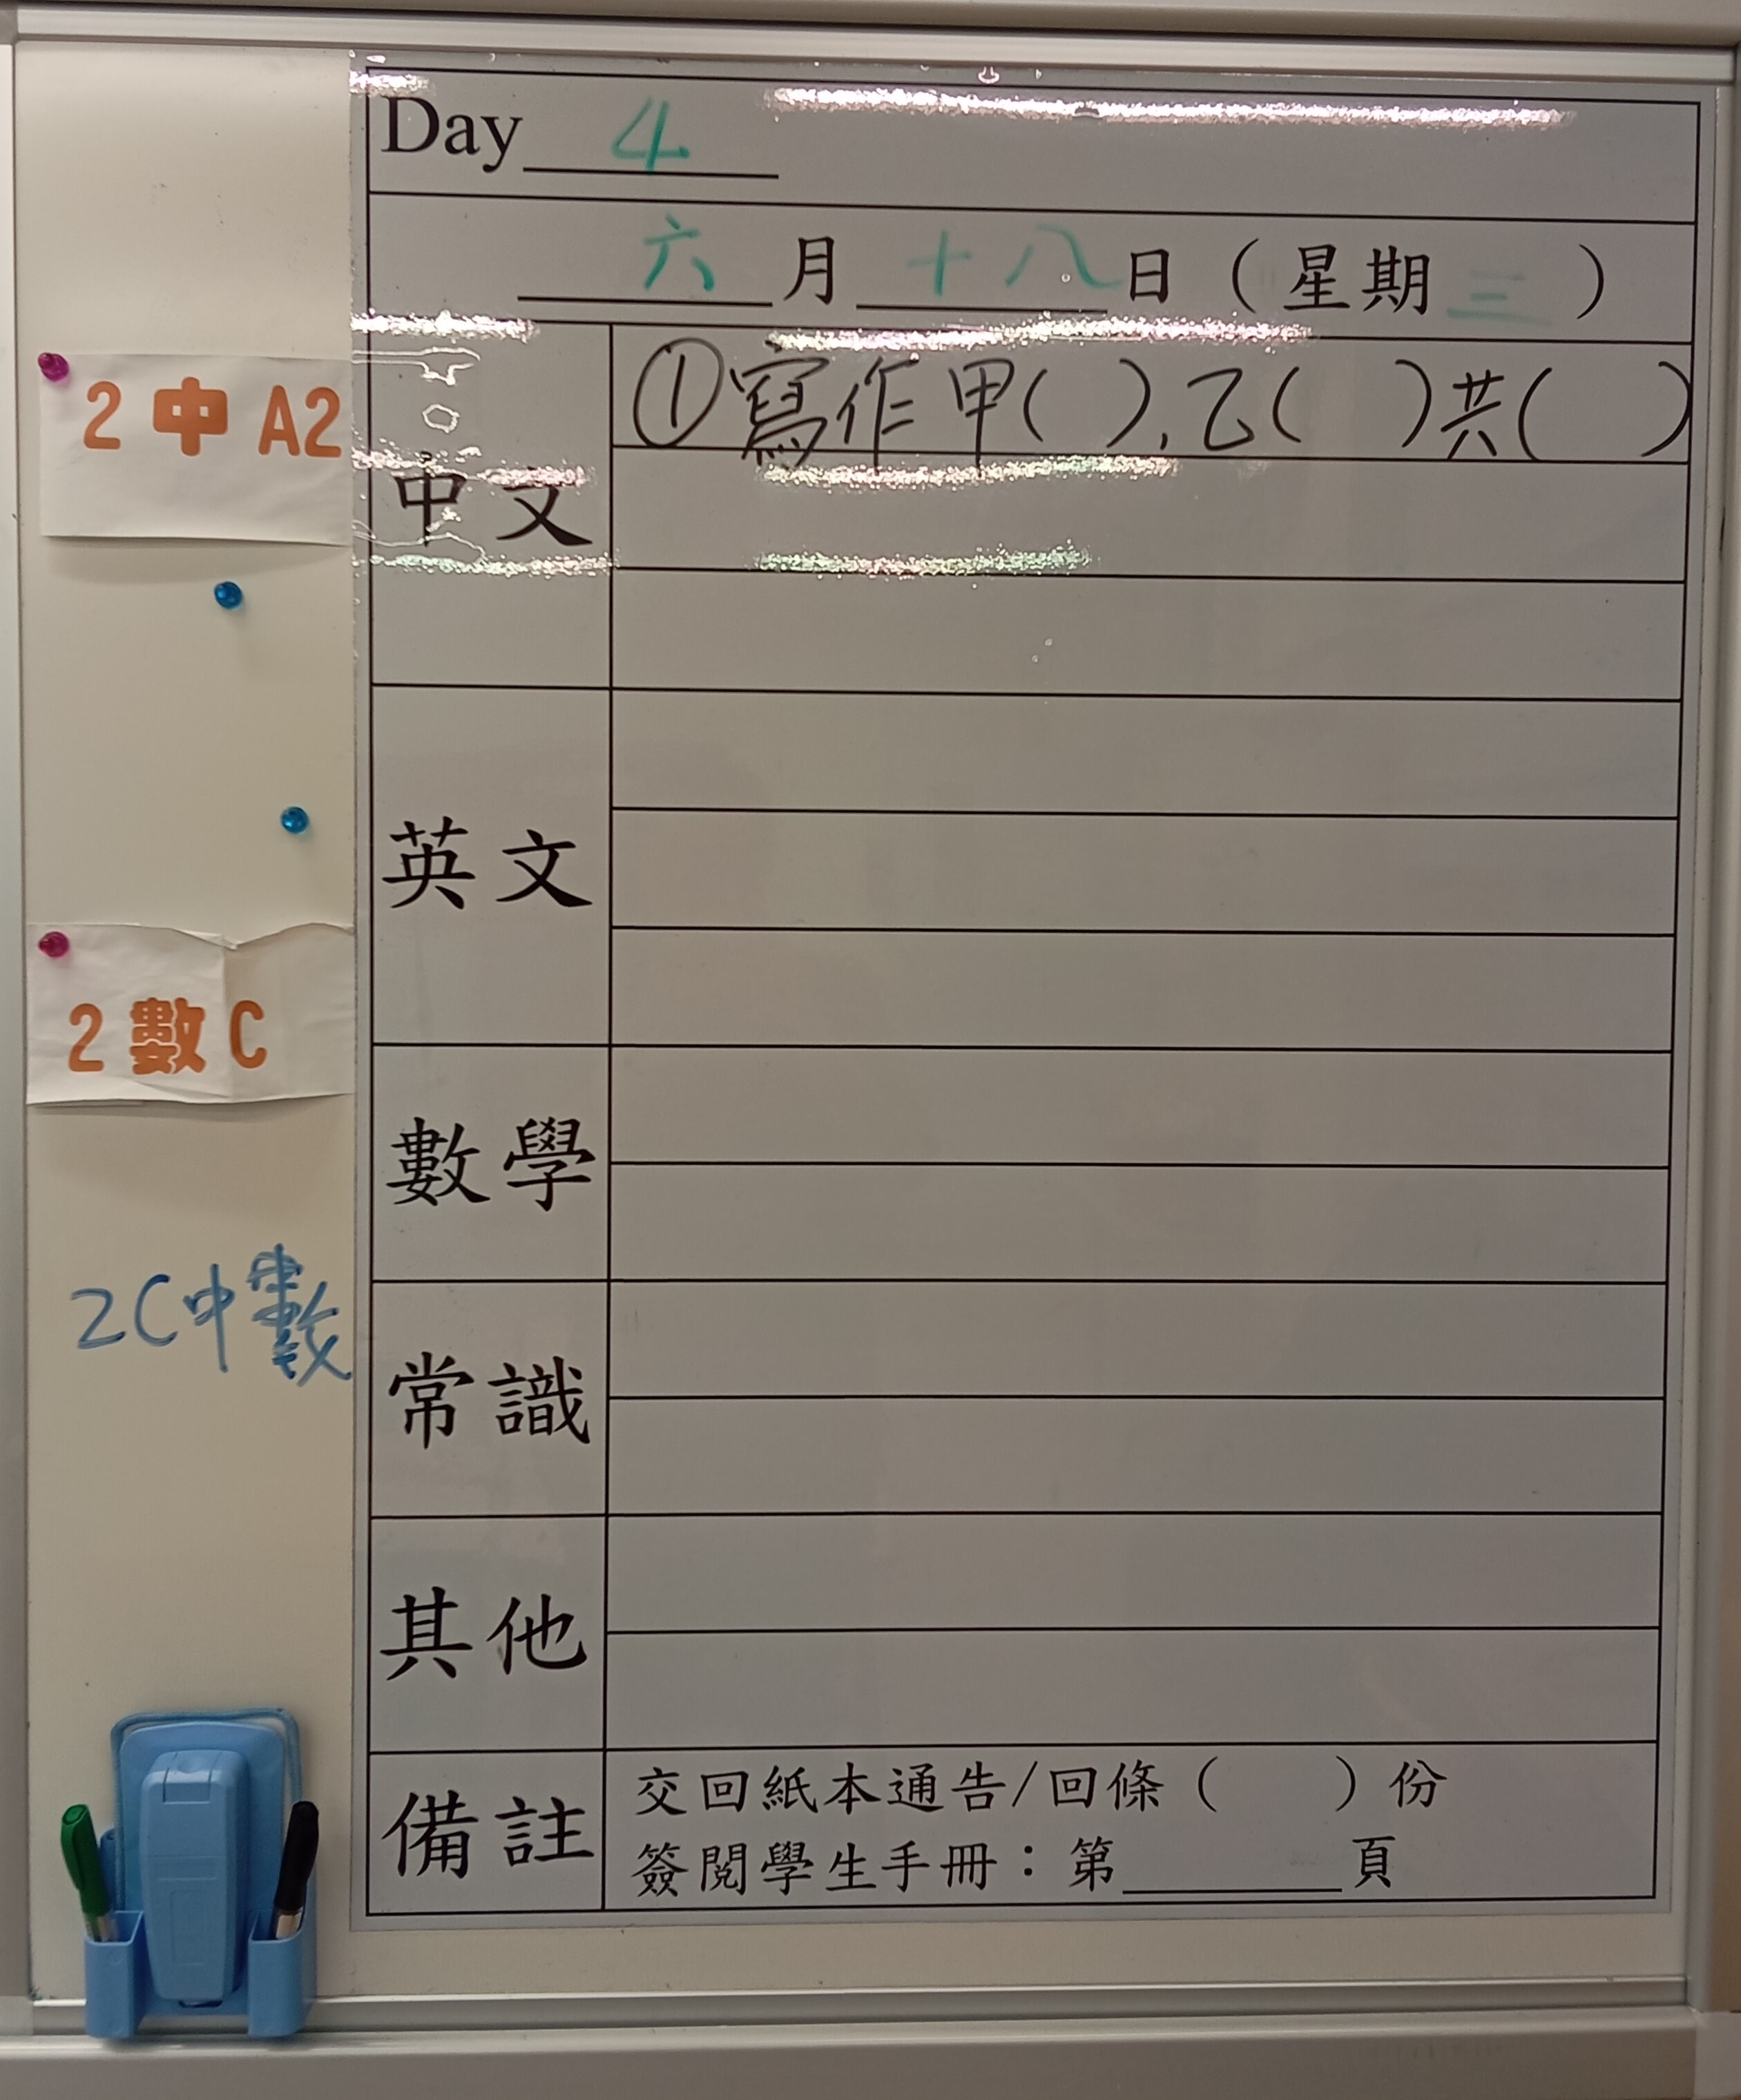 Day 4
六 月 十八 日（星期 三 ）
2 中 A2
中文
①寫作甲( ),乙( )共( )
英文
2 數 C
數學
2C中數
常識
其他
備註
交回紙本通告/回條（ ）份
簽閱學生手冊：第______頁